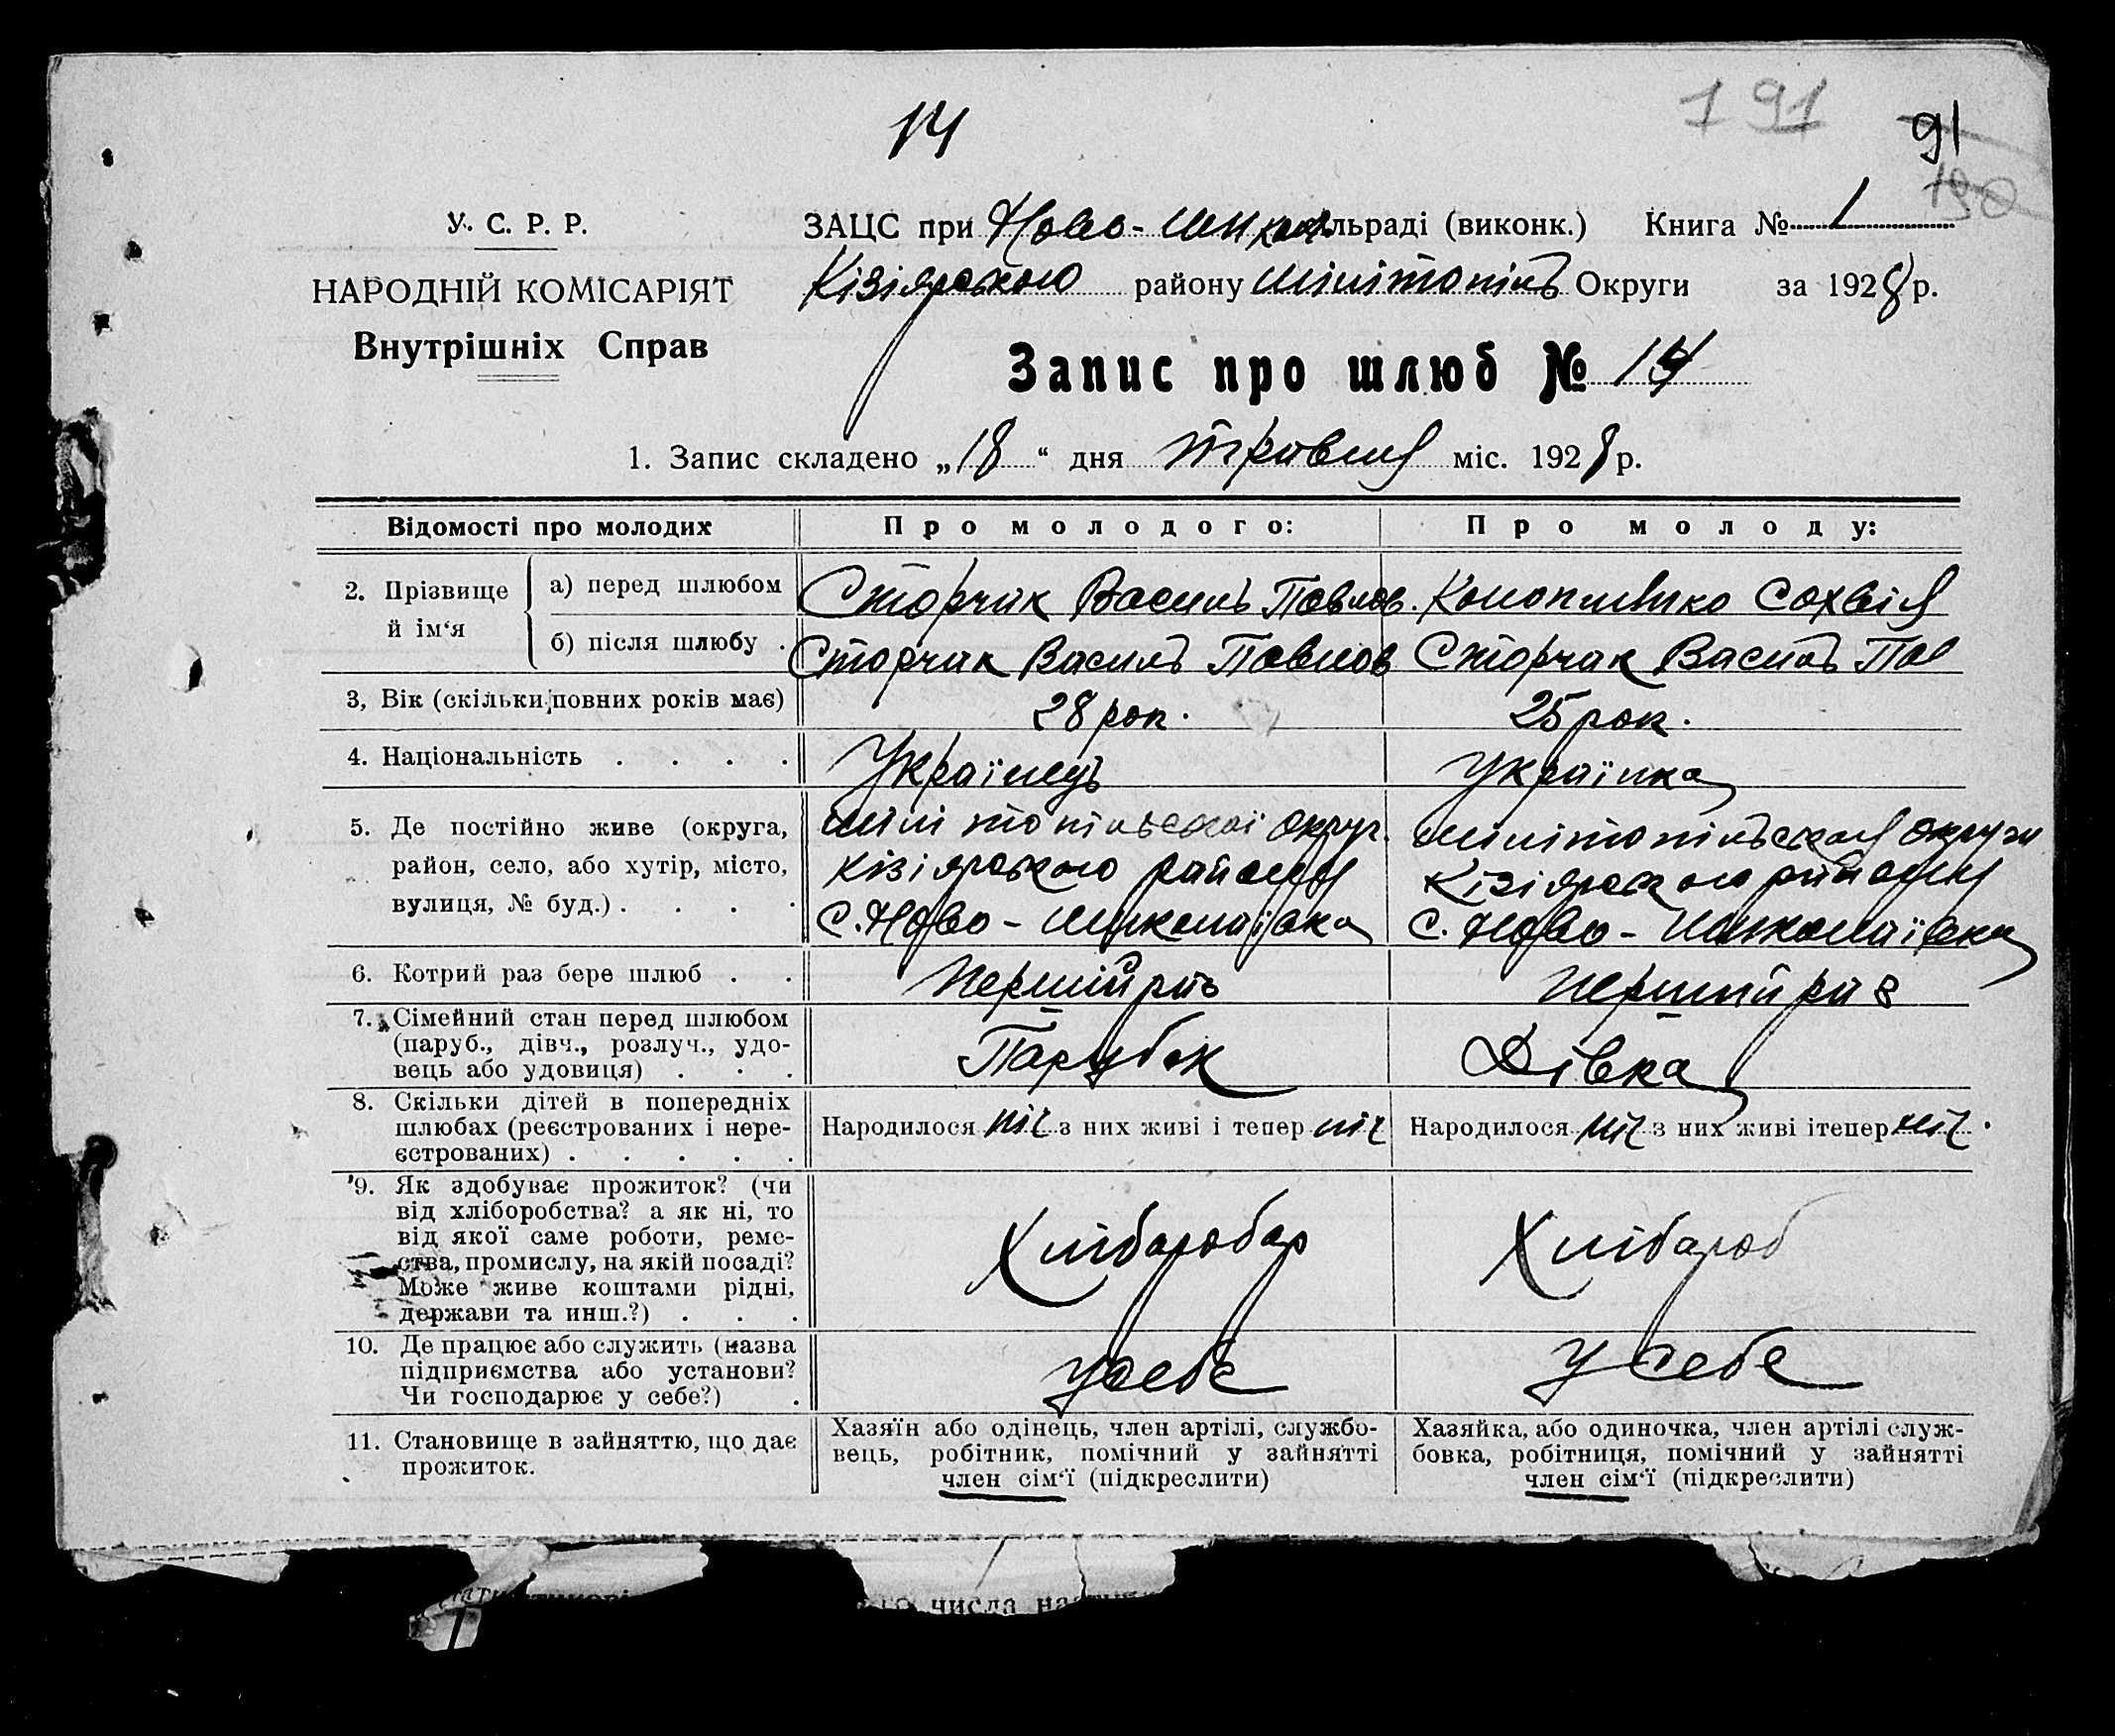 14
191
91
190
У. С. Р. Р.
НАРОДНІЙ КОМІСАРІЯТ
Внутрішніх Справ
ЗАЦС при Ново-Микол. льраді (виконк.) Книга № 1
Кізіярського району Мілітопіль Округи за 1928 р.
Запис про шлюб № 14
1. Запис складено „18“ дня травня міс. 1928 р.
Відомості про молодих
Про молодого:
Про молоду:
2. Прізвище й ім‘я
а) перед шлюбом
Сторчак Василь Павлов.
Коноплівико Сохвія
б) після шлюбу .
Сторчак Василь Павлов
Сторчак Василь Пав
3, Вік (скільки повних років має)
28 рок.
25 рок.
4. Національність . . . .
Українець
Українка
5. Де постійно живе (округа,
район, село, або хутір, місто,
вулиця, № буд.) . . . .
Мілітопільської округ.
Кізіярського району
С. Ново-Миколаївка
Мілітопільская округи
Кізіярського району
С. Ново-Миколаївка
6. Котрий раз бере шлюб . .
Перший раз
перший раз
7. Сімейний стан перед шлюбом
(паруб., дівч., розлуч., удо-
вець або удовиця) . . .
Парубок
Дівка
8. Скільки дітей в попередніх
шлюбах (реєстрованих і нере-
єстрованих) . . . . .
Народилося ніч з них живі і тепер ніч
Народилося ніч з них живі ітепер ніч.
9. Як здобуває прожиток? (чи
від хліборобства? а як ні, то
від якої саме роботи, реме-
ства, промислу, на якій посаді?
Може живе коштами рідні,
держави та инш.?) . . .
Хлібаробар
Хлібароб
10. Де працює або служить (назва
підприємства або установи?
Чи господарює у себе?) .
У себе
У себе
11. Становище в зайняттю, що дає
прожиток.
Хазяїн або одінець, член артілі, службо-
вець, робітник, помічний у зайнятті
член сім‘ї (підкреслити)
Хазяйка, або одиночка, член артілі служ-
бовка, робітниця, помічний у зайнятті
член сім‘ї (підкреслити)
числа